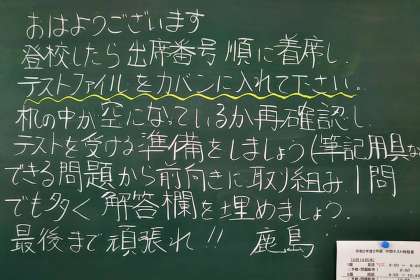 おはようございます
登校したら出席番号順に着席し
テストファイルをカバンに入れて下さい。
机の中が空になっているか再確認し
テストを受ける準備をしましょう(筆記用具な
できる問題から前向きに取り組み1問
でも多く解答欄を埋めましょう.
最後まで頑張れ!! 鹿島